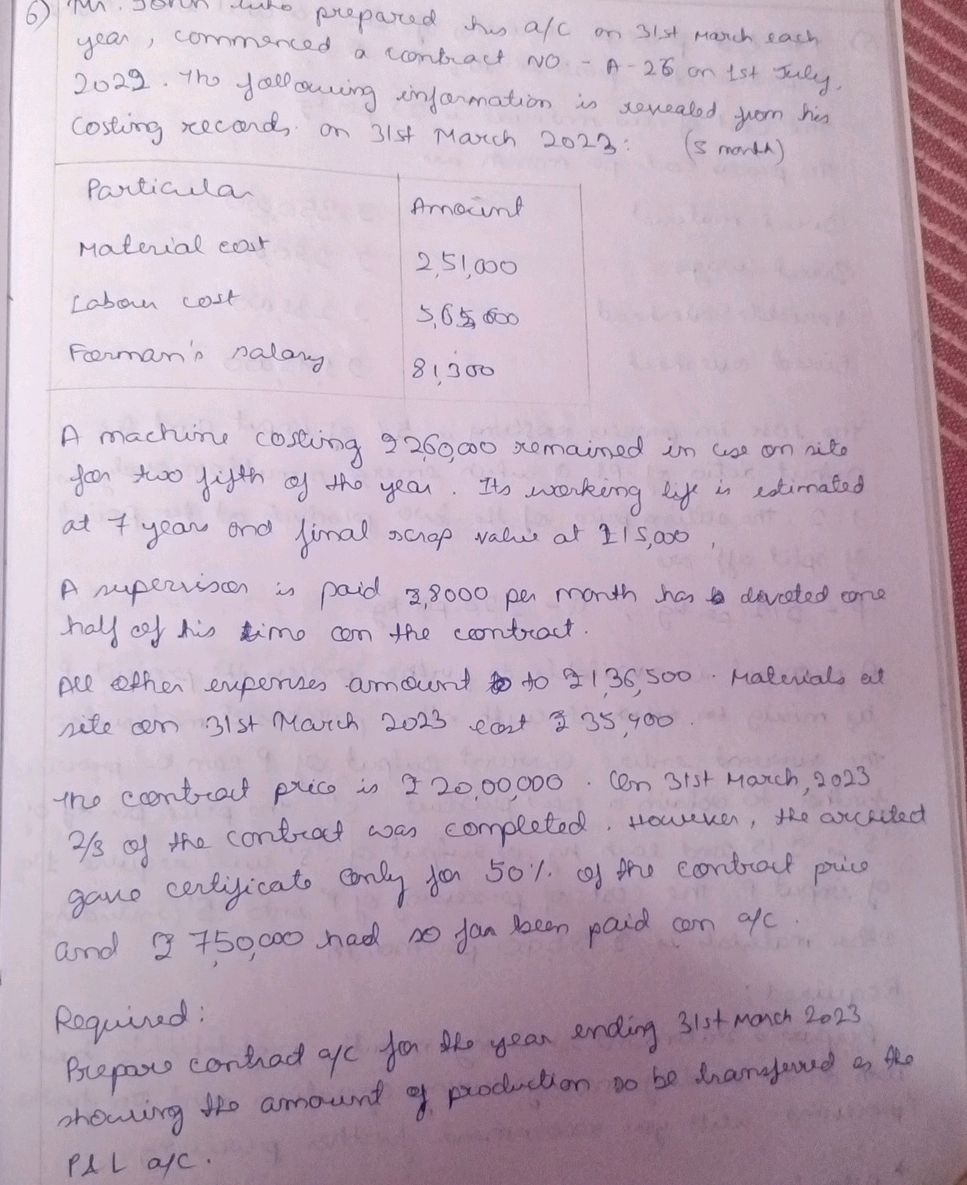 6) Mr. John who prepared his a/c on 31st March each
year, commenced a contract NO. - A-26 on 1st July,
2022. The following information is revealed from his
Costing records on 31st March 2023: (5 month)
Particular Amount
Material cost 2,51,000
Labour cost 5,65,600
Foerman's salary 81,300
A machine costing ₹ 260,000 remained in use on site
for two fifth of the year. Its working life is estimated
at 7 years and final scrap value at ₹15,000,
A supervisor is paid ₹,8000 per month has devoted one
half of his time on the contract.
All other expenses amount to ₹1,36,500. Materials at
site on 31st March 2023 cost ₹ 35,400.
The contract price is ₹ 20,00,000. On 31st March, 2023
2/3 of the contrat was completed. However, the architect
gave certificate only for 50% of the contract price
and ₹ 750,000 had so far been paid on a/c.
Required:
Prepare contract a/c for the year ending 31st March 2023
showing the amount of production to be transferred as the
P&L a/c.